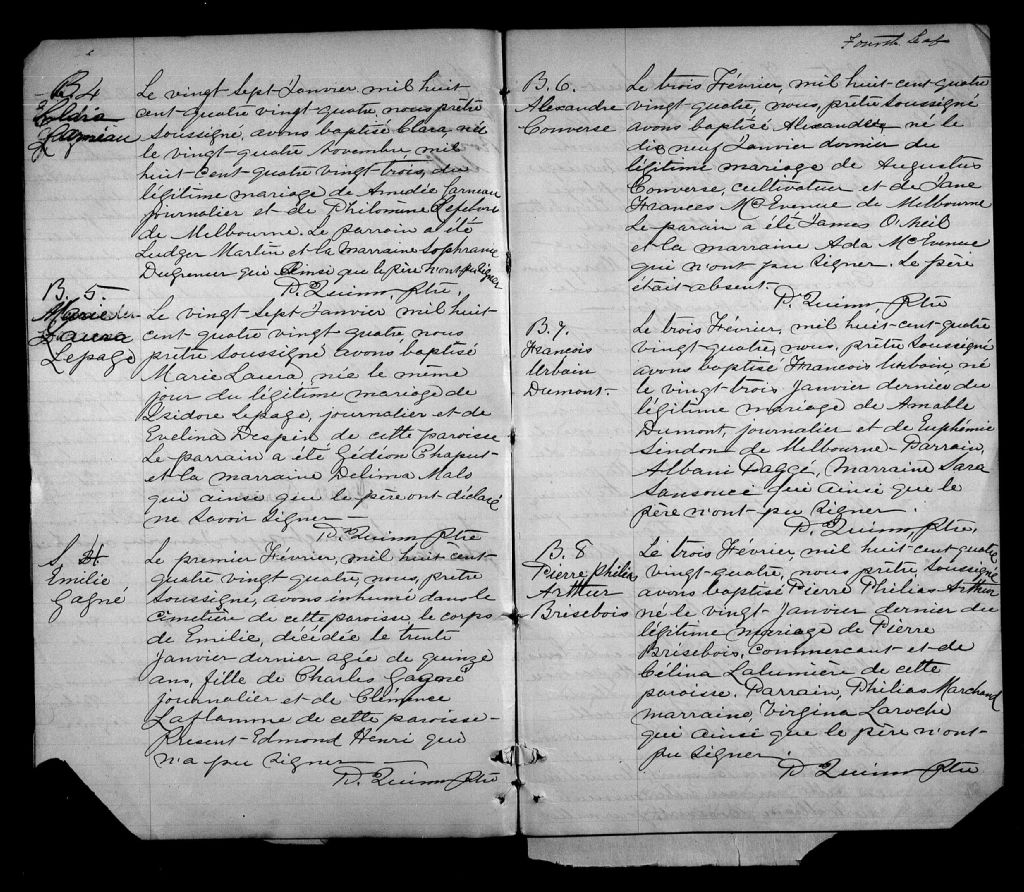 B 4
Garneau
Le vingt Sept Janvier, mil huit
cent-quatre vingt-quatre, nous, prêtre
soussigné, avons baptisé Clara, née
le vingt-quatre novembre mil
huit-cent-quatre vingt trois, du
légitime mariage de Amedée Garneau
journalier et de Philomène Lefebvre
de Melbourne. Le parrain a été
Ludger Martin et la marraine Sophranie
Dugreneur qui ainsi que le père n'ont pu signer
D. Quinn, Ptre,
B. 5.
Marie
Laura
Lepage
Le vingt Sept Janvier mil huit-
cent-quatre vingt-quatre, nous
prêtre soussigné avons baptisé
Marie Laura, née le même
jour du légitime mariage de
Isidore Lepage, journalier et de
Evelina Despin de cette paroisse
Le parrain a été Gédion Chaput
et la marraine Delima Malo
qui ainsi que le père ont déclaré
ne savoir signer —
D. Quinn Ptre
S. 4
Emilie
Gagné
Le premier Février, mil huit cent-
quatre vingt quatre, nous, prêtre
soussigné, avons inhumé dans le
cimetière de cette paroisse, le corps
de Emilie, décédée le trente
Janvier dernier agée de quinze
ans, fille de Charles Gagné
journalier et de Clémence
Laflamme de cette paroisse -
Present - Edmond Henri qui
n'a pu signer —
D. Quinn Ptre
Fourth Leaf
B. 6.
Alexandre
Converse
Le trois Février, mil huit-cent-quatre
vingt-quatre, nous, prêtre soussigné
avons baptisé Alexandre, né le
dix neuf Janvier dernier du
légitime mariage de Augustus
Converse, cultivateur et de Jane
Frances McEvenue de Melbourne
Le parain a été James O'Neil
et la marraine Ada McEvenue
qui n'ont pu signer. Le père
était absent.
D. Quinn Ptre
B. 7.
François
Urbain
Dumont.
Le trois Février, mil huit-cent-quatre
vingt-quatre, nous, prêtre soussigné
avons baptisé François Urbain, né
le vingt-trois Janvier dernier du
légitime mariage de Amable
Dumont, journalier et de Euphémie
Sendon de Melbourne - Parrain,
Albani Paggé, Marraine Sara
Sansouci qui ainsi que le
père n'ont pu signer.
D. Quinn Ptre,
B. 8
Pierre Philias
Arthur
Brisebois
Le trois Février, mil huit-cent-quatre
vingt-quatre, nous prêtre, soussigné
avons baptisé Pierre Philias Arthur
né le vingt Janvier dernier du
légitime mariage de Pierre
Brisebois, commercant et de
Célina Lalumière de cette
paroisse. Parrain, Philias Marchand
marraine, Virgina Laroche
qui ainsi que le père n'ont-
pu signer.
D. Quinn Ptre